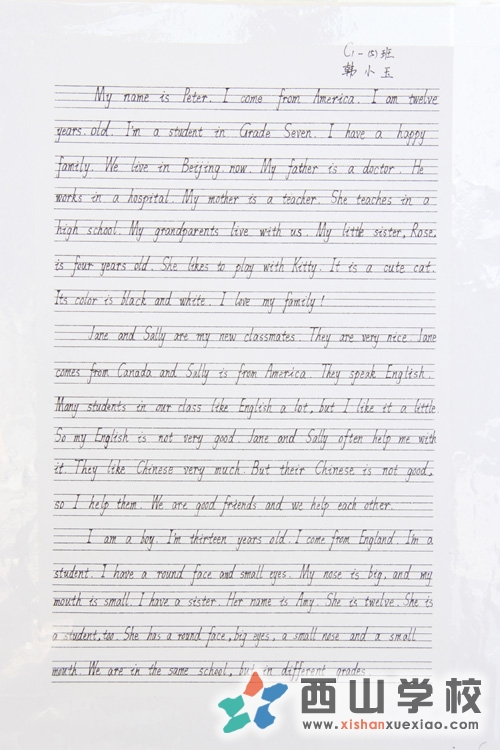 C1-(5)班
韩小玉
My name is Peter. I come from America. I am twelve
years. old. I'm a student in Grade Seven. I have a happy
family. We live in Beijing now. My father is a doctor. He
works in a hospital. My mother is a teacher. She teaches in a
high school. My grandparents live with us. My little sister, Rose,
is four years old. She likes to play with Kitty. It is a cute cat.
Its color is black and white. I love my family!
Jane and Sally are my new classmates. They are very nice. Jane
comes from Canada and Sally is from America. They speak English.
Many students in our class like English a lot, but I like it a little
So my English is not very good. Jane and Sally often help me with
it. They like Chinese very much. But their Chinese is not good,
so I help them. We are good friends and we help each other.
I am a boy. I'm thirteen years old. I come from England. I'm a
student. I have a round face and small eyes. My nose is big, and my
mouth is small. I have a sister. Her name is Amy. She is twelve. She is
a student, too. She has a round face, big eyes, a small nose and a small
mouth. We are in the same school, but in different grades.
西山学校
www.xishanxuexiao.com